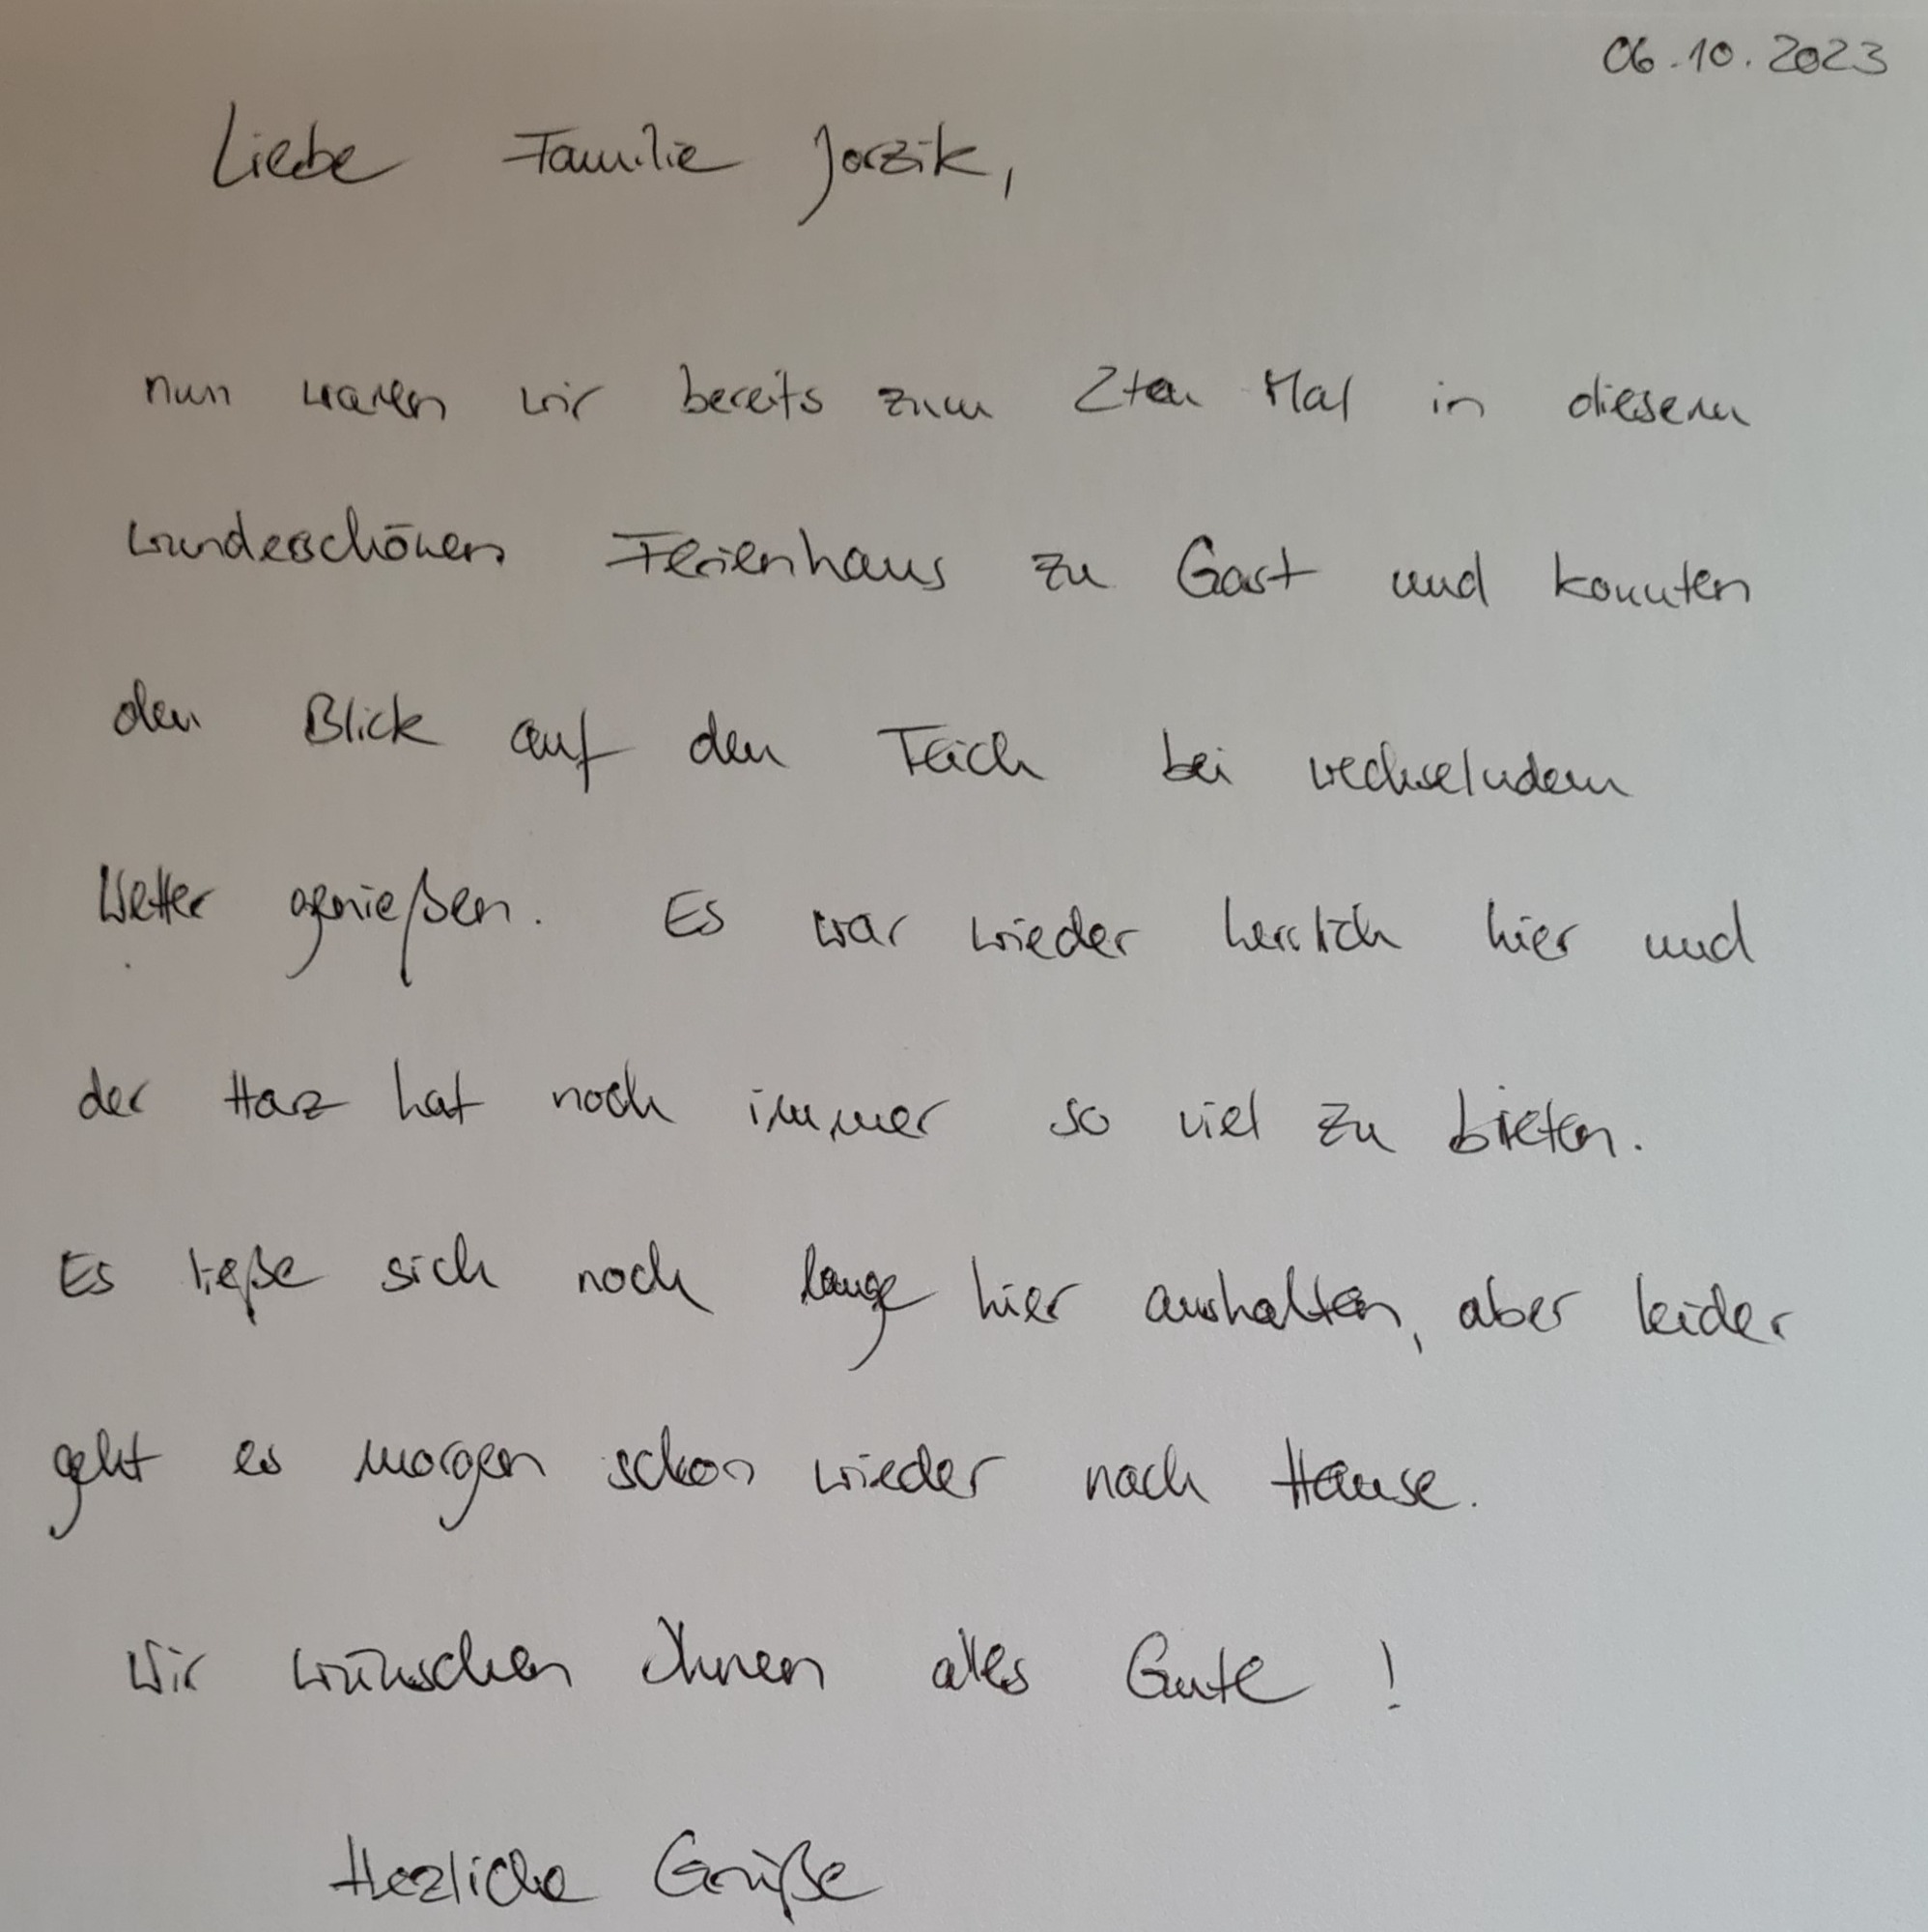 06.10.2023
Liebe Familie Jorzik,
nun waren wir bereits zum 2ten Mal in diesem
wunderschönen Ferienhaus zu Gast und konnten
den Blick auf den Teich bei wechselndem
Wetter genießen. Es war wieder herrlich hier und
der Harz hat noch immer so viel zu bieten.
Es ließe sich noch lange hier aushalten, aber leider
geht es morgen schon wieder nach Hause.
Wir wünschen Ihnen alles Gute!
Herzliche Grüße